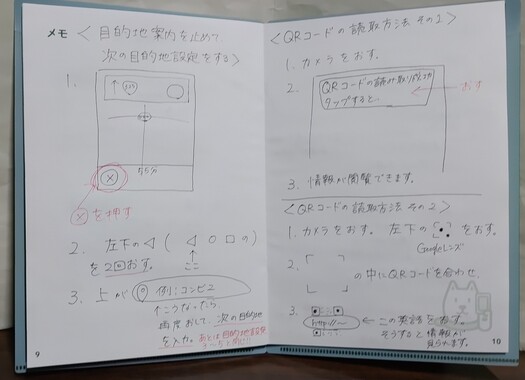 メモ
< 目的地案内を止めて、
次の目的地設定をする >
1.
↑
55分
ⓧを押す
2. 左下の◁ ( ◁ ○ □ の)
ここ
を2回おす。
3. 上が 例:コンビニ
↑こうなったら
再度おして、次の目的地
を入力。あとは目的地設定
9
<QRコードの読取方法 その1>
1. カメラをおす。
2. QRコードの読み取り
タップすると、
おす
3. 情報が閲覧できます。
<QRコードの読取方法 その2>
1. カメラをおす。 左下の をおす。
Googleレンズ
2. の中にQRコードを合わせ、
3.
http://~ ← この英語をおす。
そうすると情報が
見られます。
10